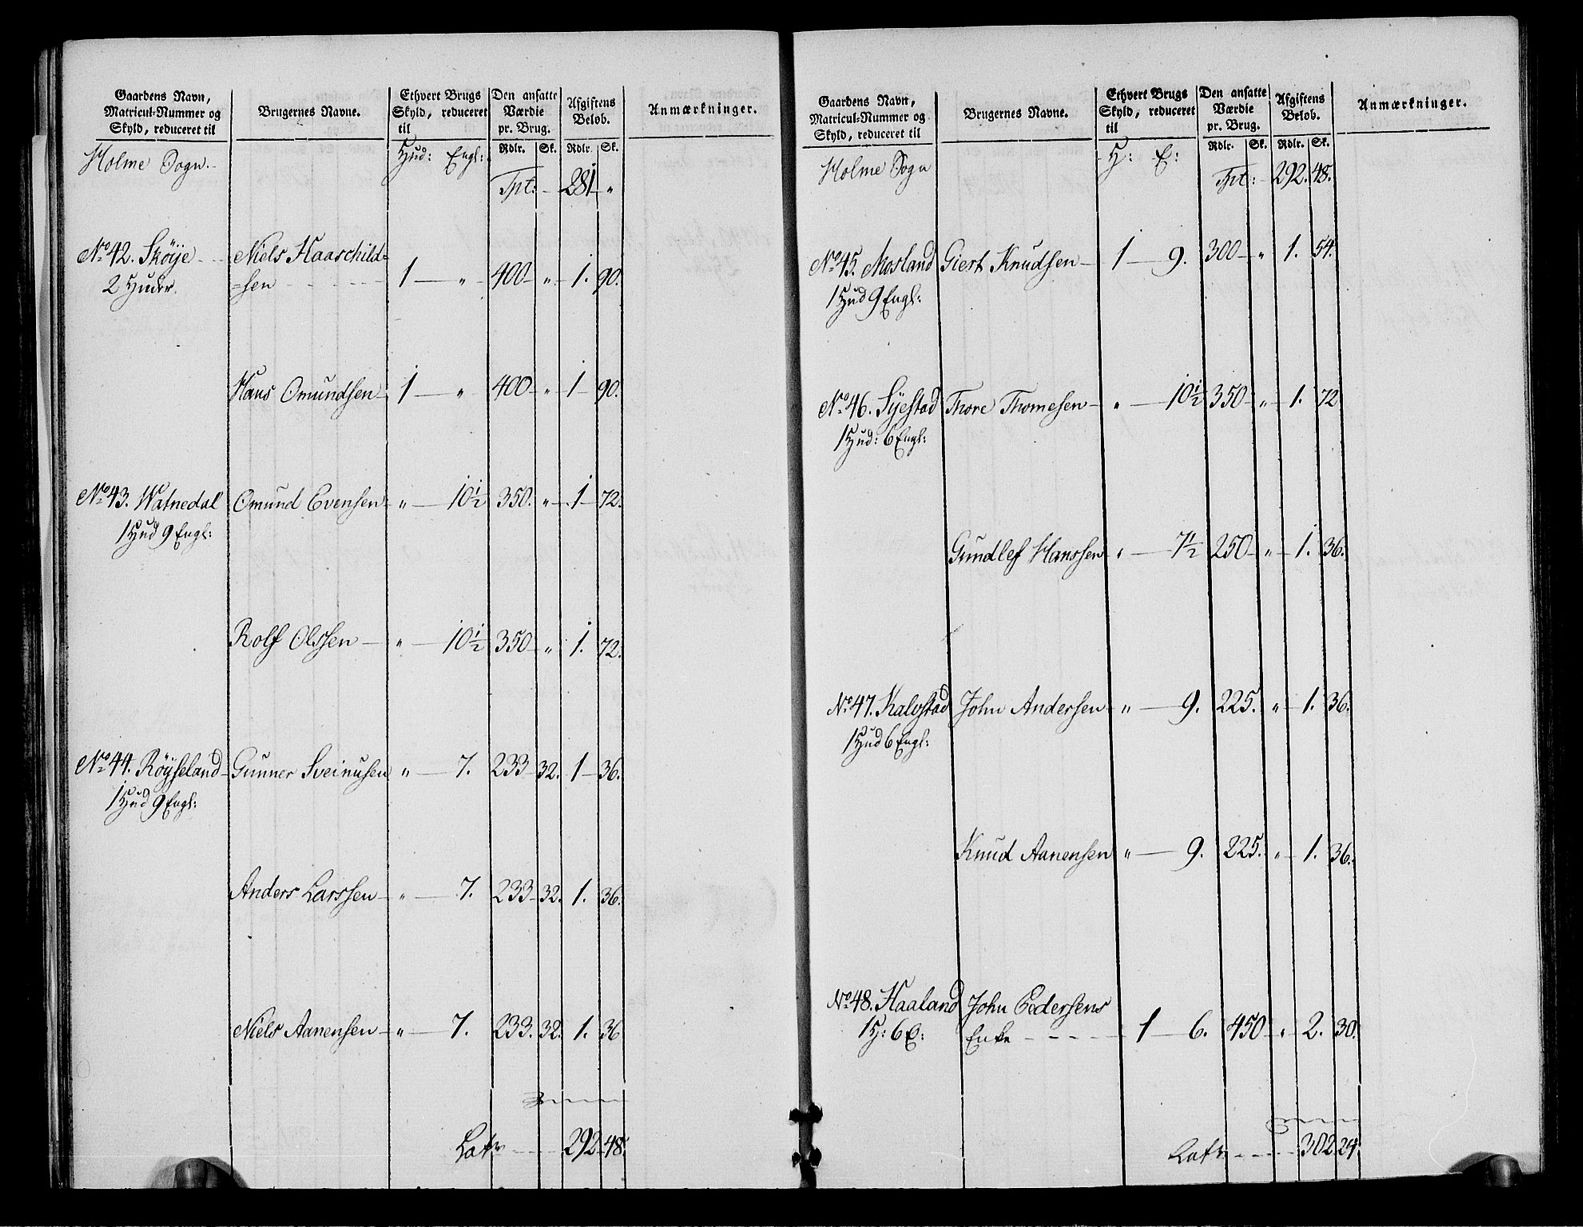 Gaardens Navn,
Matricul-Nummer og
Skyld, reduceret til
Brugernes Navne.
Ethvert Brugs
Skyld, reduceret
til
Den ansatte
Værdie
pr. Brug.
Rdlr. Sk.
Afgiftens
Beløb.
Rdlr. Sk.
Anmærkninger.
Holme Sogn Hud: Engl:
Tpt: 281 "
No 42. Skøÿe Niels Haaschild=
2 Huder =sen 1 " 400 " 1. 90.
Hans Omundsen 1 " 400 " 1 90.
No 43. Watnedal Omund Evensen " 10½ 350. " 1 72.
1 Hud 9 Engl:
Rolf Olssen " 10½ 350 " 1. 72.
No 44. Røÿseland Gunner Sveinusen " 7. 233 32. 1 36.
1 Hud 9 Engl:
Anders Larssen " 7. 233 32. 1. 36.
Niels Aanensen " 7. 233. 32. 1. 36
Latr 292 48.
Gaardens Navn,
Matricul-Nummer og
Skyld, reduceret til
Brugernes Navne.
Ethvert Brugs
Skyld, reduceret
til
Den ansatte
Værdie
pr. Brug.
Rdlr. Sk.
Afgiftens
Beløb.
Rdlr. Sk.
Anmærkninger.
Holme Sogn H: E:
Tpt: 292. 48.
No 45. Mosland Giert Knudsen 1 9. 300 " 1. 54.
1 Hud 9 Engl:
No 46. Sÿestad Thore Thomesen " 10½ 350 " 1. 72
1 Hud: 6 Engl:
Gundlef Hanssen " 7½ 250 " 1. 36.
No 47. Kalvstad John Andersen " 9. 225. " 1. 36.
1 Hud 6 Engl:
Knud Aanensen " 9. 225. " 1. 36.
No 48. Haaland John Pedersens
1 H: 6 E: Enke 1 6. 450 " 2. 30.
Latr 302 24.